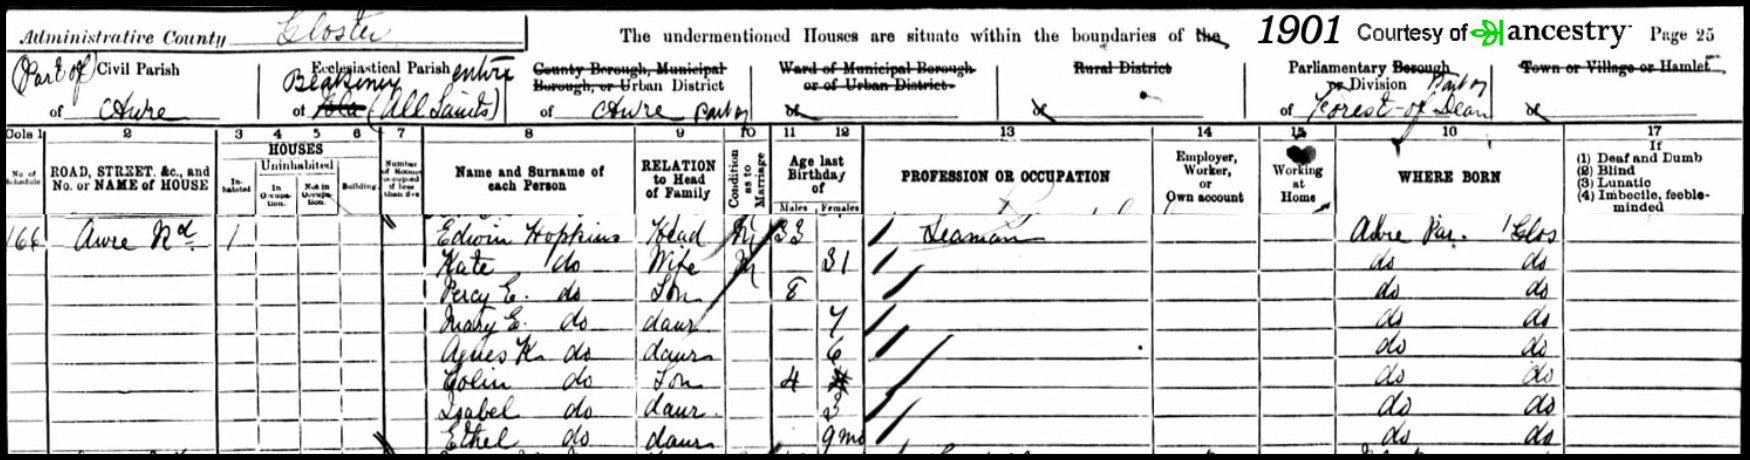 Administrative County Gloster The undermentioned Houses are situate within the boundaries of the 1901 Courtesy of ancestry Page 25
(Part of) Civil Parish of Awre
Ecclesiastical Parish entire of Blakeney (All Saints)
County Borough, Municipal Borough, or Urban District of Awre part of
Ward of Municipal Borough or of Urban District of
Rural District of
Parliamentary Borough or Division Part of of Forest of Dean
Town or Village or Hamlet of
Cols 1 2 3 4 5 6 7 8 9 10 11 12 13 14 15 16 17
No of Schedule
ROAD, STREET, &c., and No. or NAME of HOUSE
HOUSES
In-habited
Uninhabited
In Occupa-tion.
Not in Occupa-tion.
Building.
Number of Rooms occupied if less than five
Name and Surname of each Person
RELATION to Head of Family
Condition as to Marriage
Age last Birthday of
Males Females
PROFESSION OR OCCUPATION
Employer, Worker, or Own account
Working at Home
WHERE BORN
If
(1) Deaf and Dumb
(2) Blind
(3) Lunatic
(4) Imbecile, feeble-minded
166 Awre Rd 1 Edwin Hopkins Head M 33 Seaman Awre Par. Glos
Kate do Wife M 31 do do
Percy E. do Son 8 do do
Mary E. do daur 7 do do
Agnes K do daur 6 do do
Colin do Son 4 do do
Isabel do daur 3 do do
Ethel do daur 9 mo do do